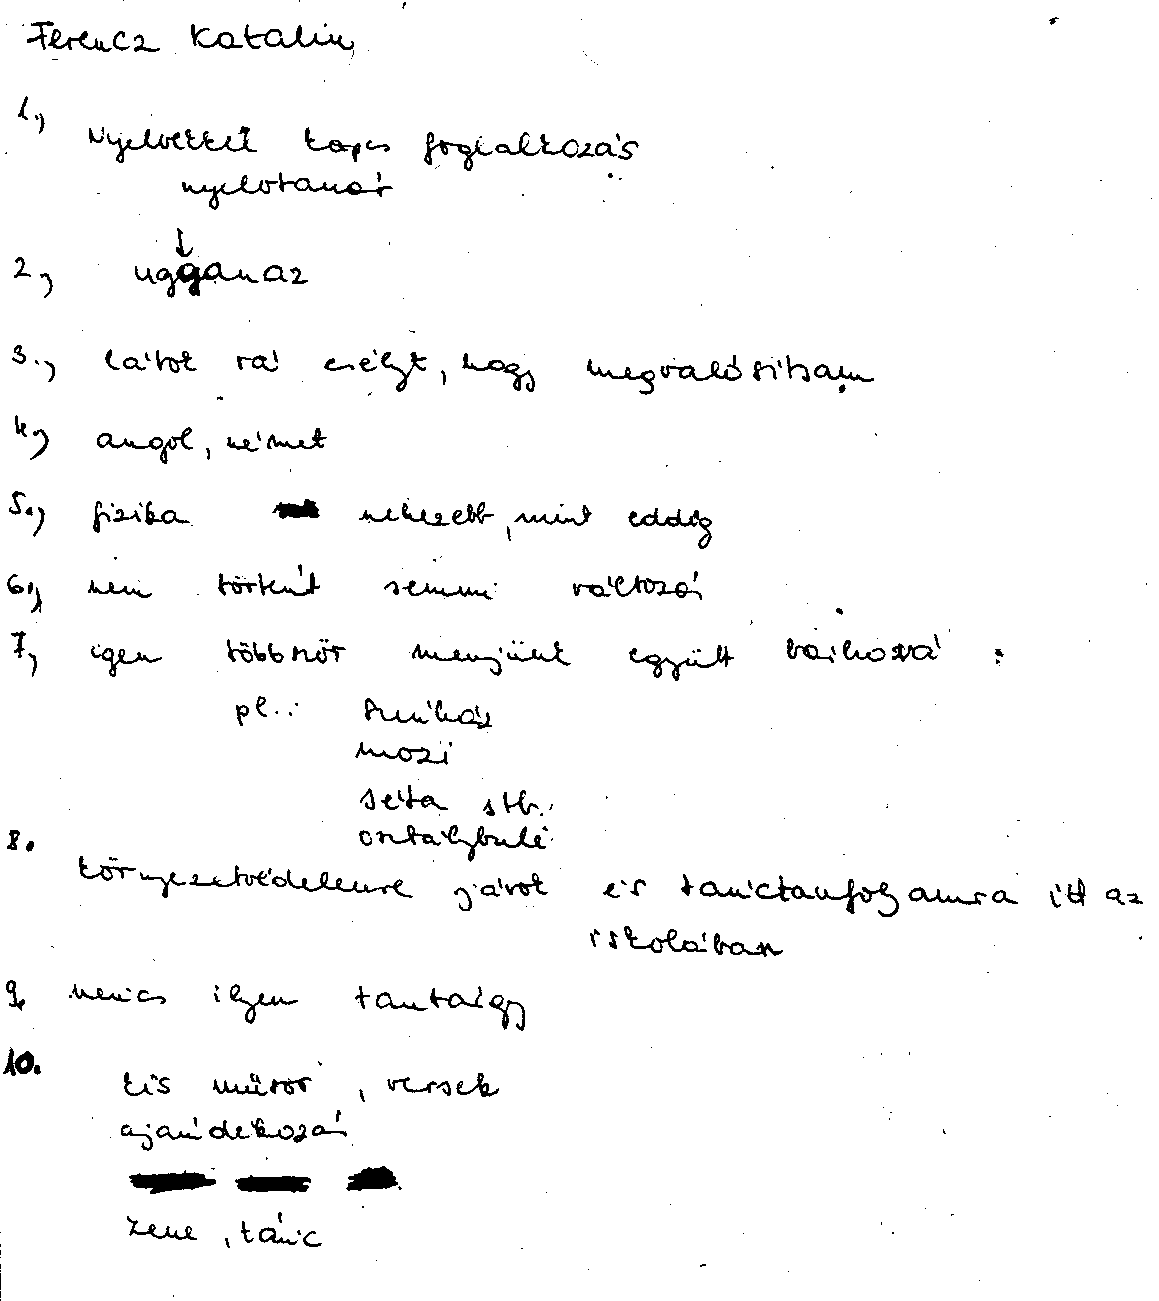 Ferencz Katalin
1.,
Nyelvekkel kapcs foglalkozás
nyelvtanár
↓
2., ugganaz
3., látok rá esélyt, hogy megvalósítsam
4., angol, német
5., fizika nehezebb, mint eddig
6., nem történt semmi változás
7., igen többször menjünk együtt bárhová :
pl.: színház
mozi
séta stb.
osztálybuli
8.
környezetvédelemre járok és tánctanfolyamra itt az
iskolában
9, nincs ilyen tantárgy
10.
kis műsor, versek
ajándékozás
zene, tánc